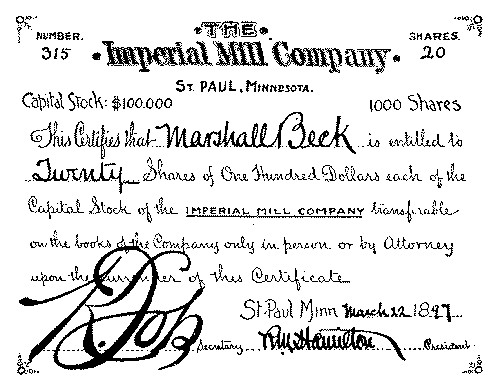 THE
NUMBER. SHARES.
315 Imperial Mill Company. 20
ST. PAUL, MINNESOTA.
Capital Stock: $100.000 1000 Shares
This Certifies that Marshall Beck is entitled to
Twenty Shares of One Hundred Dollars each of the
Capital Stock of the IMPERIAL MILL COMPANY transferable
on the books of the Company only in person or by Attorney
upon the surrender of this Certificate
St. Paul Minn March 22 1897
Secretary R.M. Hamilton President